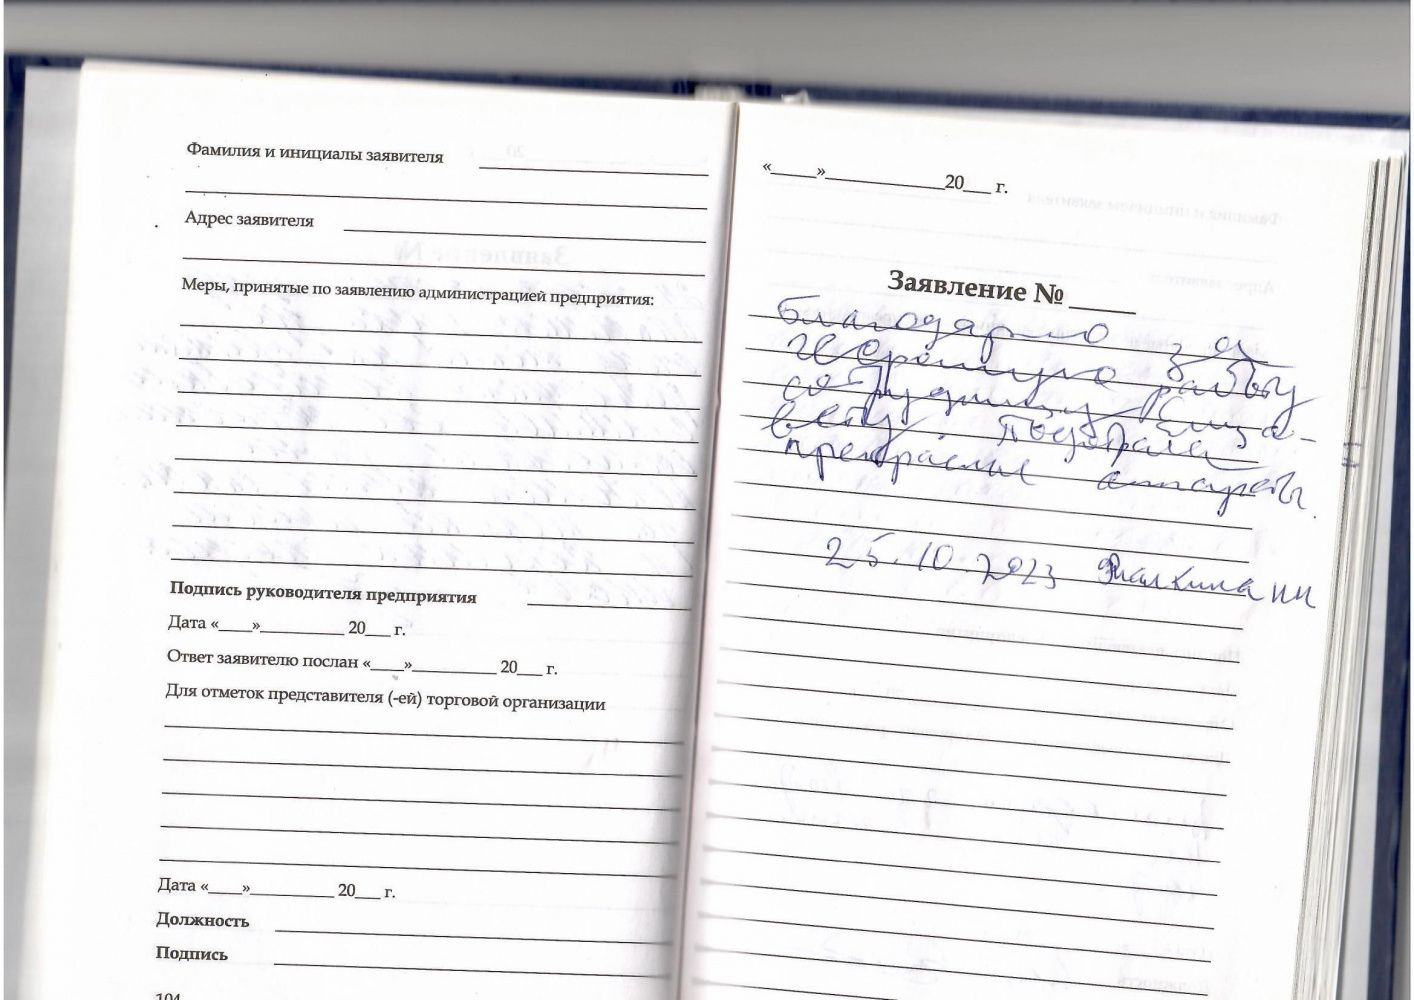 Фамилия и инициалы заявителя
Адрес заявителя
Меры, принятые по заявлению администрацией предприятия:
Подпись руководителя предприятия
Дата «____»__________ 20___ г.
Ответ заявителю послан «____»__________ 20___ г.
Для отметок представителя (-ей) торговой организации
Дата «____»__________ 20___ г.
Должность
Подпись
104
«_____»_____________20___ г.
Заявление №_____
благодарю за
хорошую работу
сотрудницу Елиза-
вету. Подобрала
прекрасные аппараты.
25.10.2023